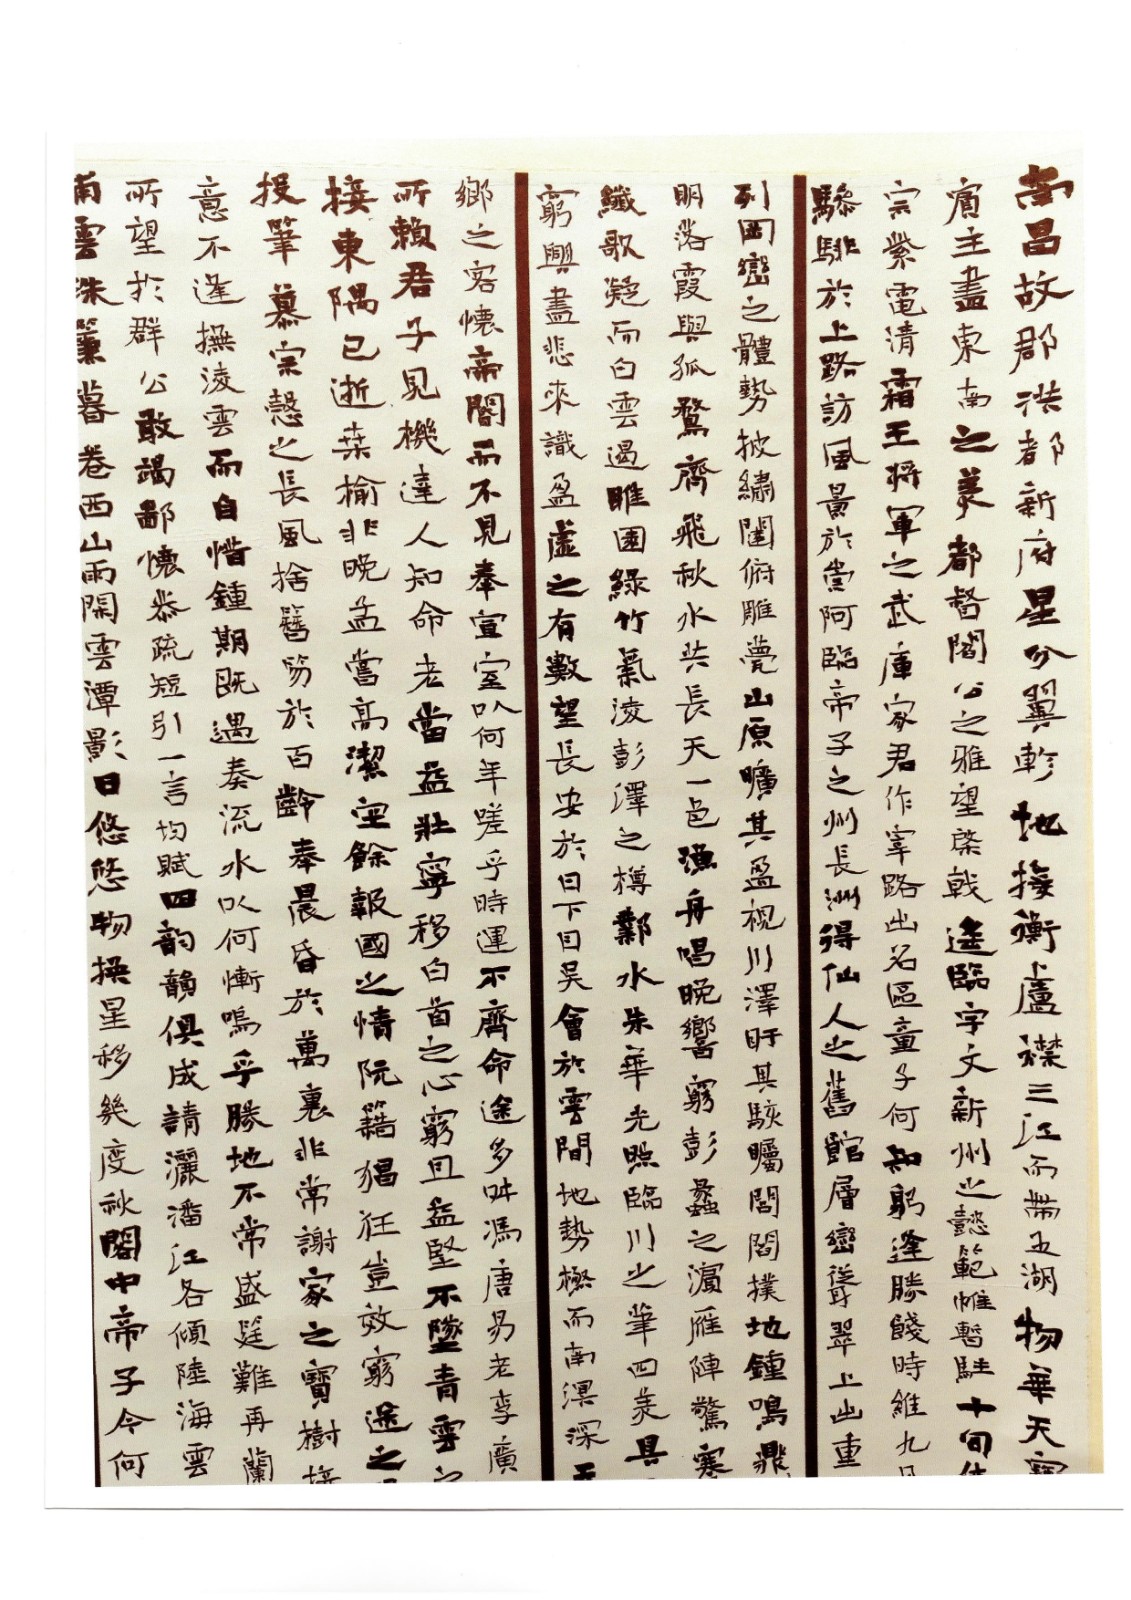 南昌故郡洪都新府星分翼軫地接衡廬襟三江而帶五湖物華天寶
賓主盡東南之美都督閻公之雅望棨戟遙臨宇文新州之懿範帷暫駐十旬休
宗紫電清霜王將軍之武庫家君作宰路出名區童子何知躬逢勝餞時維九月
驂騑於上路訪風景於崇阿臨帝子之州長洲得仙人之舊館層巒聳翠上出重
列岡巒之體勢披繡闥俯雕甍山原曠其盈視川澤盱其駭矚閭閻撲地鐘鳴鼎
明落霞與孤鶩齊飛秋水共長天一色漁舟唱晚響窮彭蠡之濱雁陣驚寒
纖歌凝而白雲遏睢園綠竹氣凌彭澤之樽鄴水朱華光照臨川之筆四美具
窮興盡悲來識盈虛之有數望長安於日下目吳會於雲間地勢極而南溟深天
鄉之客懷帝閽而不見奉宣室以何年嗟乎時運不齊命途多舛馮唐易老李廣
所賴君子見機達人知命老當益壯寧移白首之心窮且益堅不墜青雲之
接東隅已逝桑榆非晚孟嘗高潔空餘報國之情阮籍猖狂豈效窮途之
投筆慕宗愨之長風捨簪笏於百齡奉晨昏於萬裏非常謝家之寶樹接
意不逢撫凌雲而自惜鍾期既遇奏流水以何慚嗚乎勝地不常盛筵難再蘭
所望於群公敢竭鄙懷恭疏短引一言均賦四韵韻俱成請灑潘江各傾陸海雲
南雲珠簾暮卷西山雨閑雲潭影日悠悠物換星移幾度秋閣中帝子今何